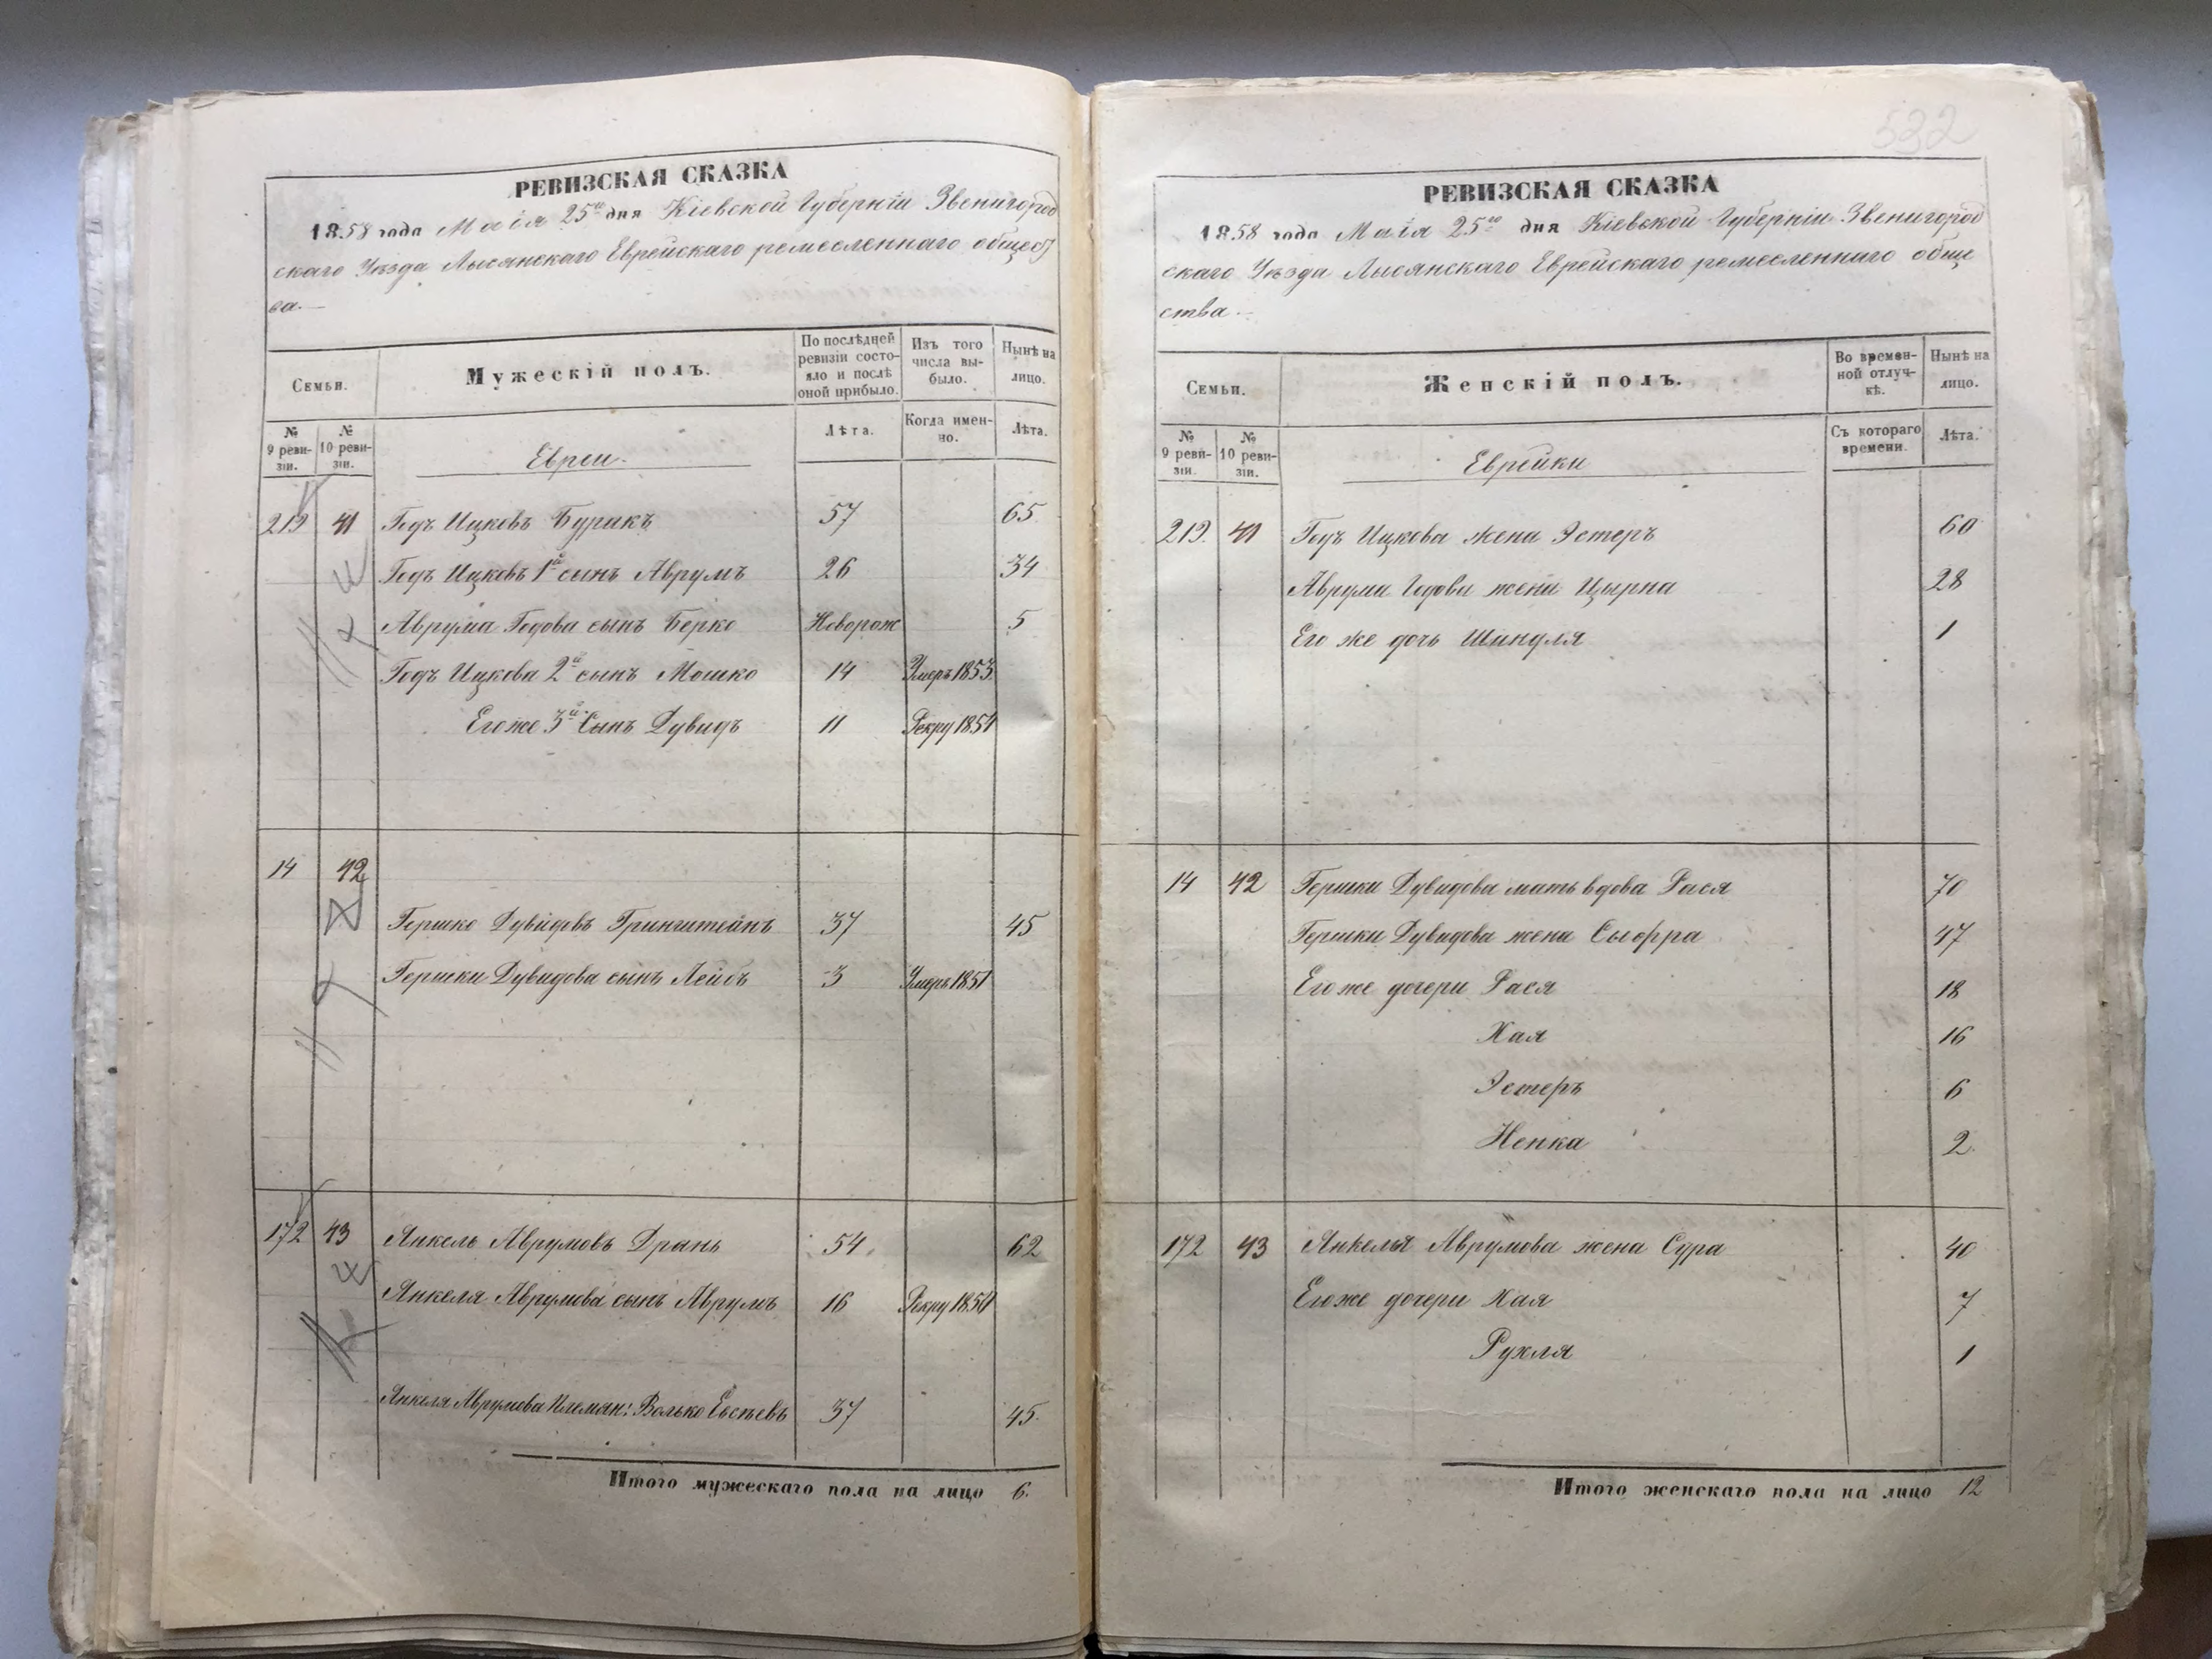 РЕВИЗСКАЯ СКАЗКА
1858 года Маія 25го дня Кіевской Губерніи Звенигород
скаго Уѣзда Лысянскаго Еврейскаго ремесленнаго общест
ва.
Семьи.
Мужескій полъ.
По послѣдней ревизіи состояло и послѣ оной прибыло.
Изъ того числа выбыло.
Нынѣ на лицо.
№ 9 ревизіи.
№ 10 ревизіи.
Евреи.
Лѣта.
Когда именно.
Лѣта.
219 41 Годъ Ицковъ Бурикъ 57 65
Годъ Ицковъ 1й сынъ Аврумъ 26 34
Аврума Годова сынъ Берко Новорож 5
Годъ Ицкова 2й сынъ Мошко 14 Умеръ 1853
Его же 3й Сынъ Дувидъ 11 Рекру 1854
14 42
Гершко Дувидовъ Гринштейнъ 37 45
Гершки Дувидова сынъ Лейбъ 3 Умеръ 1851
172 43 Янкель Аврумовъ Драньѣ 54 62
Янкеля Аврумова сынъ Аврумъ 16 Рекру 1854
Янкеля Аврумова Племян: Волько Евсѣевъ 37 45.
Итого мужескаго пола на лицо 6.
532
РЕВИЗСКАЯ СКАЗКА
1858 года Маія 25го дня Кіевской Губерніи Звенигород
скаго Уѣзда Лысянскаго Еврейскаго ремесленнаго обще
ства.
Семьи.
Женскій полъ.
Во временной отлучкѣ.
Нынѣ на лицо.
№ 9 ревизіи.
№ 10 ревизіи.
Еврейки
Съ котораго времени.
Лѣта.
219. 41 Годъ Ицкова жена Эстеръ 60
Аврума Годова жена Цырна 28
Его же дочь Шиндля 1
14 42 Гершки Дувидова мать вдова Рася 70
Гершки Дувидова жена Сыофра 47
Его же дочери Рася 18
Хая 16
Эстеръ 6
Ненка 2
172 43 Янкеля Аврумова жена Сура 40
Его же дочери Хая 7
Рухля 1
Итого женскаго пола на лицо 12